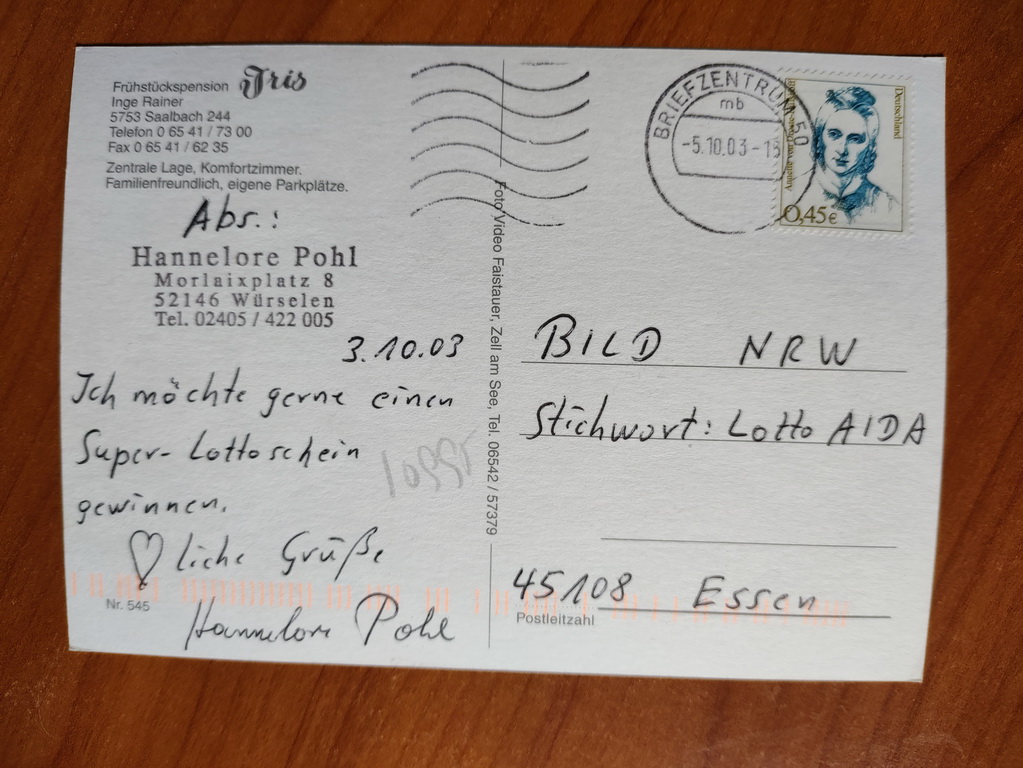 Frühstückspension Iris
Inge Rainer
5753 Saalbach 244
Telefon 0 65 41 / 73 00
Fax 0 65 41 / 62 35
Zentrale Lage, Komfortzimmer.
Familienfreundlich, eigene Parkplätze.
Abs.:
Hannelore Pohl
Morlaixplatz 8
52146 Würselen
Tel. 02405 / 422 005
3.10.03
Ich möchte gerne einen
Super-Lottoschein
gewinnen.
♡liche Grüße
Hannelore Pohl
Nr. 545
Foto Video Faistauer, Zell am See, Tel. 06542 / 57379
BRIEFZENTRUM 50
mb
-5.10.03-
Deutschland
0,45€
BILD NRW
Stichwort: Lotto AIDA
45108 Essen
Postleitzahl